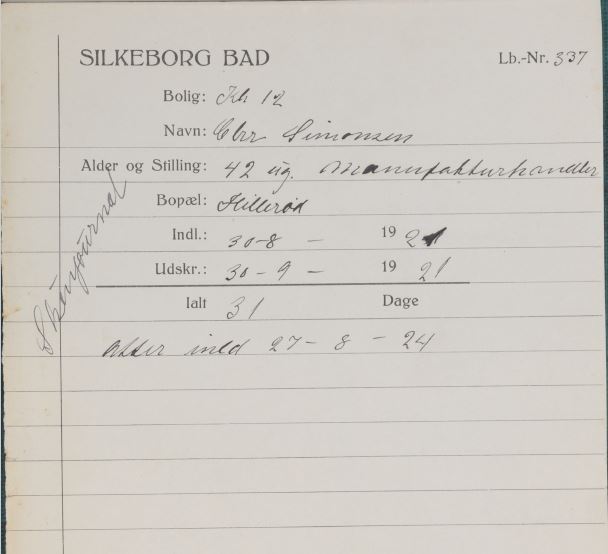 SILKEBORG BAD
Lb.-Nr. 337
Bolig: Kh 12
Navn: Chr Simonsen
Alder og Stilling: 42 ug. Manufakturhandler
Bopæl: Hillerød
Indl.: 30-8 - 1921
Udskr.: 30-9- 1921
Ialt 31 Dage
Atter indl 27-8-24